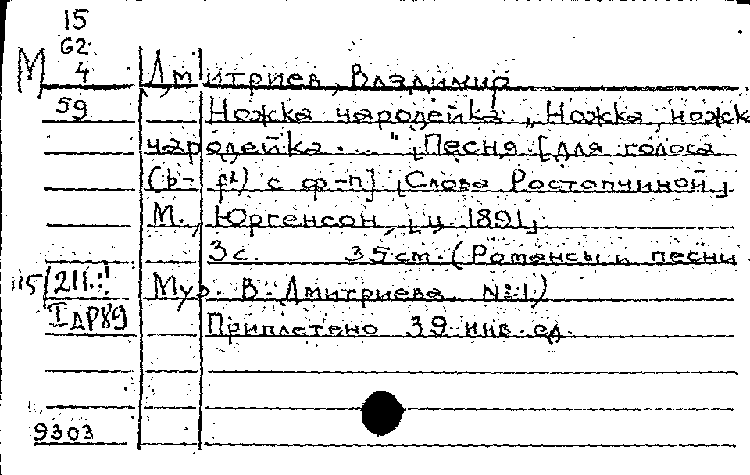 15
62
М 4 Дмитриев, Владимир
59 Ножка чародейка „Ножка, ножка
чародейка . . . " [Песня [для голоса
(b- ) с ф-п] [Слова Ростопчиной]
М., Юргенсон, [ц. 1891]
3 с. 35 см. (Романсы и песни
115/211 Муз. В. Дмитриева. №1)
I др89 Приплетено 39 инв. ед.
9303